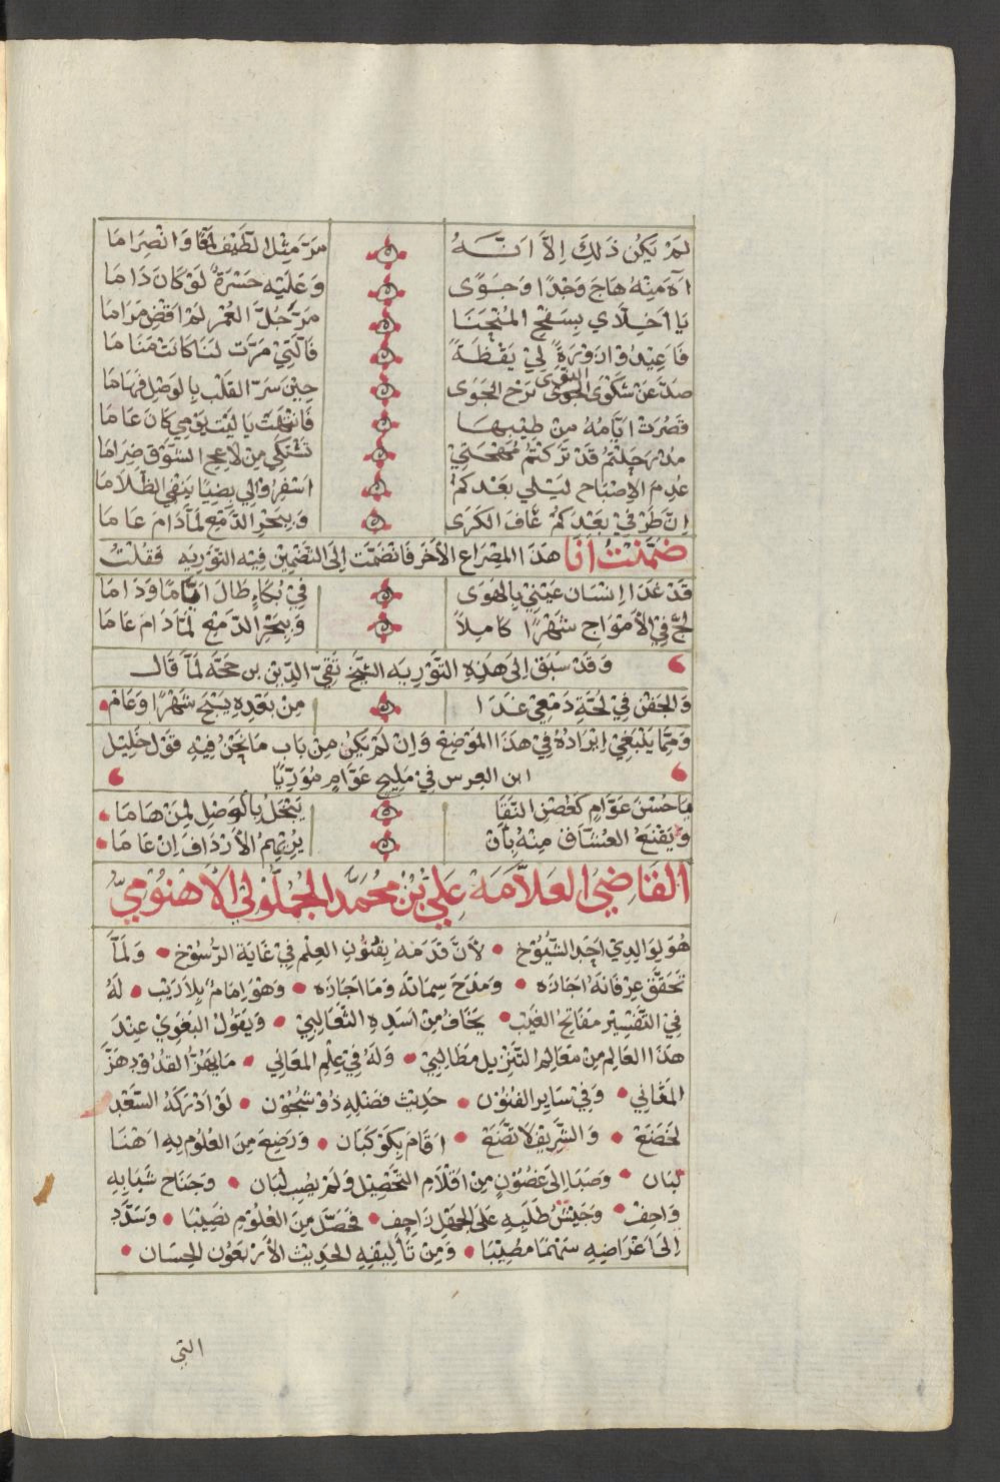 لَمْ يَكُنْ ذَلِكَ اِلَّا اَنَّهُ مَرَّ مِثْلَ الطَّيْفِ لَمْحًا وَانْصِرَامَا
اَهَ مِنْهُ هَاجَ وَجْدًا وَجَوًى وَعَلَيْهِ حَسْرَةٌ لَوْ كَانَ دَامَا
يَا اَخِلَّاي بِسَفْحِ المُنْحَنَا مَرَّ جُلَّ العُمْرِ لَمْ اقْضِ مَرَامَا
فَاَعِيْدُوْا زَوْرَةً لِيْ يَقْظَةً فَالَّتِيْ مَرَّت لَنَا كَانَتْ مَنَامَا
صَدَّ عَنْ شَكْوَى الجَوَى بَرْحِ الجَوَى حِيْنَ سَرَّ القَلْبَ بِالوَصْلِ فَهَامَا
النَّوَى
قَصُرَتْ اَيَّامُهُ مِنْ طِيْبِهَا فَانْقَضَتْ يَا لَيْتَ يَوْمِي كَانَ عَامَا
مُذْ رَحَلْتُمْ قَدْ تَرَكْتُمْ مُهْجَتِيْ تَشْتَكِي مِنْ لَاعِجِ الشَّوْقِ ضِرَامَا
عُدِمَ الاِصْبَاح لَيْلِي بَعْدَكُمْ اسْفِرُوْا لِي بِضِيًا يَنْفِي الظَّلَامَا
اِنَّ طَرْفِيْ بَعْدَكُمْ عَافَ الكَرَى وَبِبَحْرِ الدَّمْعِ لَمَّا دَامَ عَامَا
ضَمَّنْتُ اَنَا هَذَا المِصْرَاع الاَخَر فَانْضَمَّت اِلَى التَّضْمِيْنِ فِيْهِ التَّوْرِيَه فَقُلْتُ
قَدْ غَدَا اِنْسَان عَيْنِيْ بِالهَوَى فِيْ بُكَاءٍ طَالَ اَيَّامًا وَدَامَا
لَجَّ فِي الاَمْوَاجِ شَهْرًا كَامِلًا وَبِبَحْرِ الدَّمْعِ لَمَّا دَامَ عَامَا
وَقَدْ سَبَقَ اِلَى هَذِهِ التَّوْرِيَه الشَّيْخ تَقِيّ الدِّيْن بن حَجَّه لَمَّا قَال
وَالجَفْنُ فِيْ لُجَّةِ دَمْعِيْ غَدَا مِنْ بَعْدِهِ يَسْبَحُ شَهْرًا وَعَام
وَمِمَّا يَنْبَغِيْ اِيْرَادُهُ فِيْ هَذَا المَوْضِعِ وَاِنْ لَمْ يَكُنْ مِنْ بَاب مَا نَحْنُ فِيْهِ قَوْل خَلِيْل
ابن الغرس فِيْ مَلِيْحٍ عَوَّامٍ مُوَرِّيًا
يَا حُسْنَ عَوَّامٍ كَغُصْنِ النَّقَا يَبْخَلُ بِالوَصْلِ لِمَنْ هَامَا
وَيَقْنَعُ العُشَّاقُ مِنْهُ بِاَنْ يُرِيْهِمُ الاَرْدَافَ اِنْ عَامَا
القَاضِي العَلَّامَة عَلِيّ بْنُ مُحَمَّد الجُمْلُوْلِيْ الاَهْنُوْمِيّ
هُوَ لِوَالِدِيْ اَجَلّ الشُّيُوْخ لاَنَّ قَدَمَهُ بِفُنُوْنِ العِلْمِ فِيْ غَايَةِ الرُّسُوْخ وَلَمَّا
تَحَقَّقَ عِرْفَانَهُ اَجَازَه وَمَدَحَ سِمَاتَه وَمَا اَجَازَه وَهُوَ اِمَامٌ بِلَا رَيْب لَهُ
فِيْ التَّفْسِيْرِ مَفَاتِحُ الغَيْب يَخَافُ مِنْ اَسَدِهِ الثَّعَالِبِيْ وَيَقُوْلُ البَغَوِيْ عِنْدَ
هَذَا العَالِمِ مِنْ مَعَالِمِ التَّنْزِيلِ مَطَالِبِيْ وَلَهُ فِيْ عِلْمِ المَعَانِي مَا يَهُزُّ القُدُوْدَ هَزَّ
المَغَانِي وَفِيْ سَايِرِ الفُنُوْن حَدِيْث فَضْلِهِ ذُوْ شُجُوْن لَوْ اَدْرَكَهُ السَّعْد
لَخَضَعَ وَالشَّرِيْف لاَتَّضَعَ اَقَامَ بِكَوْكَبَان وَرَضِعَ مِنَ العُلُوْمِ بِهِ اَهْنَا
لَبَان وَصَبَا اِلَى غُصُوْنٍ مِنْ اَقْلَامِ التَّحْصِيْل وَلَمْ يَصْبُ لِبَان وَجَنَاح شَبَابِهِ
وَاحِفْ وَجَيْشُ طَلَبِهِ عَلَى الجَهْلِ زَاحِف فَحَصَّلَ مِنَ العُلُوْمِ نَصِيْبًا وَسَدَّدَ
اِلَى اَغْرَاضِهِ سَهْمًا مُصِيْبًا وَمِنْ تَأْلِيْفِهِ الحَدِيْث الاَرْبَعُوْن الحِسَان
التي